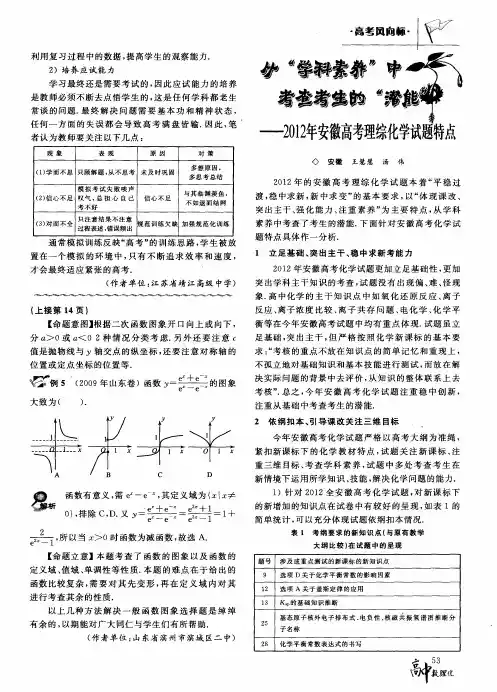 利用复习过程中的数据,提高学生的观察能力.
2) 培养应试能力
学习最终还是需要考试的,因此应试能力的培养
是教师必须不断去点悟学生的,这是任何学科都老生
常谈的问题.最终解决问题需要基本功和精神状态,
任何一方面的失误都会导致高考满盘皆输.因此,笔
者认为教师要关注以下几点:
现 象 表 现 原 因 对 策
(1)学而不思 只顾解题,从不思考 未及时巩固 多整原因,多思考总结
(2)信心不足 模拟考试失败唉声叹气,总担心自己考不好 信心不足 与其临渊羡鱼,不如退而结网
(3)对而不全 只注意结果不注意过程表述,错误频出 规范训练欠缺 加强规范化训练
通常模拟训练反映“高考”的训练思路,学生被放
置在一个模拟的环境中,只有不断追求效率和速度,
才会最终适应紧张的高考.
(作者单位:江苏省靖江高级中学)
(上接第 14 页)
【命题意图】根据二次函数图象开口向上或向下,
分 a>0 或 a<0 2 种情况分类考虑.另外还要注意 c
值是抛物线与 y 轴交点的纵坐标,还要注意对称轴的
位置或定点坐标的位置等.
例 5 (2009 年山东卷) 函数 y=(e^x+e^-x)/(e^x-e^-x)的图象
大致为( ).
A B C D
解析 函数有意义,需 e^x-e^-x,其定义域为{x|x≠
0},排除 C、D.又 y=(e^x+e^-x)/(e^x-e^-x)=(e^2x+1)/(e^2x-1)=1+
2/(e^2x-1),所以当 x>0 时函数为减函数,故选 A.
【命题立意】本题考查了函数的图象以及函数的
定义域、值域、单调性等性质.本题的难点在于给出的
函数比较复杂,需要对其先变形,再在定义域内对其
进行考查其余的性质.
以上几种方法解决一般函数图象选择题是绰绰
有余的,以期能对广大同仁与学们有所帮助.
(作者单位:山东省滨州市滨城区二中)
·高考风向标·
从“学科素养”中
考查考生的“潜能”
——2012年安徽高考理综化学试题特点
◇ 安徽 王慧慧 汤 伟
2012 年的安徽高考理综化学试题本着“平稳过
渡,稳中求新,新中求变”的基本要求,以“体现课改、
突出主干、强化能力、注重素养”为主要特点,从学科
素养中考查了考生的潜能.下面针对安徽高考化学试
题特点具体作一分析.
1 立足基础、突出主干、稳中求新考能力
2012 年安徽高考化学试题更加立足基础性,更加
突出学科主干知识的考查,试题没有出现偏、难、怪现
象.高中化学的主干知识点中如氧化还原反应、离子
反应、离子浓度比较、离子共存问题、电化学、化学平
衡等在今年安徽高考试题中均有重点体现.试题虽立
足基础,突出主干,但严格按照化学新课标的基本要
求:“考核的重点不放在知识点的简单记忆和重现上,
不孤立地对基础知识和基本技能进行测试,而放在解
决实际问题的背景中去评价,从知识的整体联系上去
考核”.总之,今年安徽高考化学试题注重稳中创新,
注重从基础中考查考生的潜能.
2 依纲扣本、引导课改关注三维目标
今年安徽高考化学试题严格以高考大纲为准绳,
紧扣新课标下的化学教材特点,试题关注新课标、注
重三维目标、考查学科素养,试题中多处考查考生在
新情境下运用所学知识、技能,解决化学问题的能力.
1) 针对 2012 全安徽高考化学试题,对新课标下
的新增加的知识点在试卷中有较好的呈现,如表 1 的
简单统计,可以充分体现试题依纲扣本情况.
表 1 考纲要求的新知识点(与原有教学
大纲比较)在试题中的呈现
题号 涉及或重点测试的新课标的新知识点
9 选项 D 关于化学平衡常数的影响因素
12 选项 A 关于盖斯定律的应用
13 Ksp的基础知识推断
25 基态原子核外电子排布式、电负性、核磁共振氢谱图推断分子名称
28 化学平衡常数表达式的书写
53
高中数理化